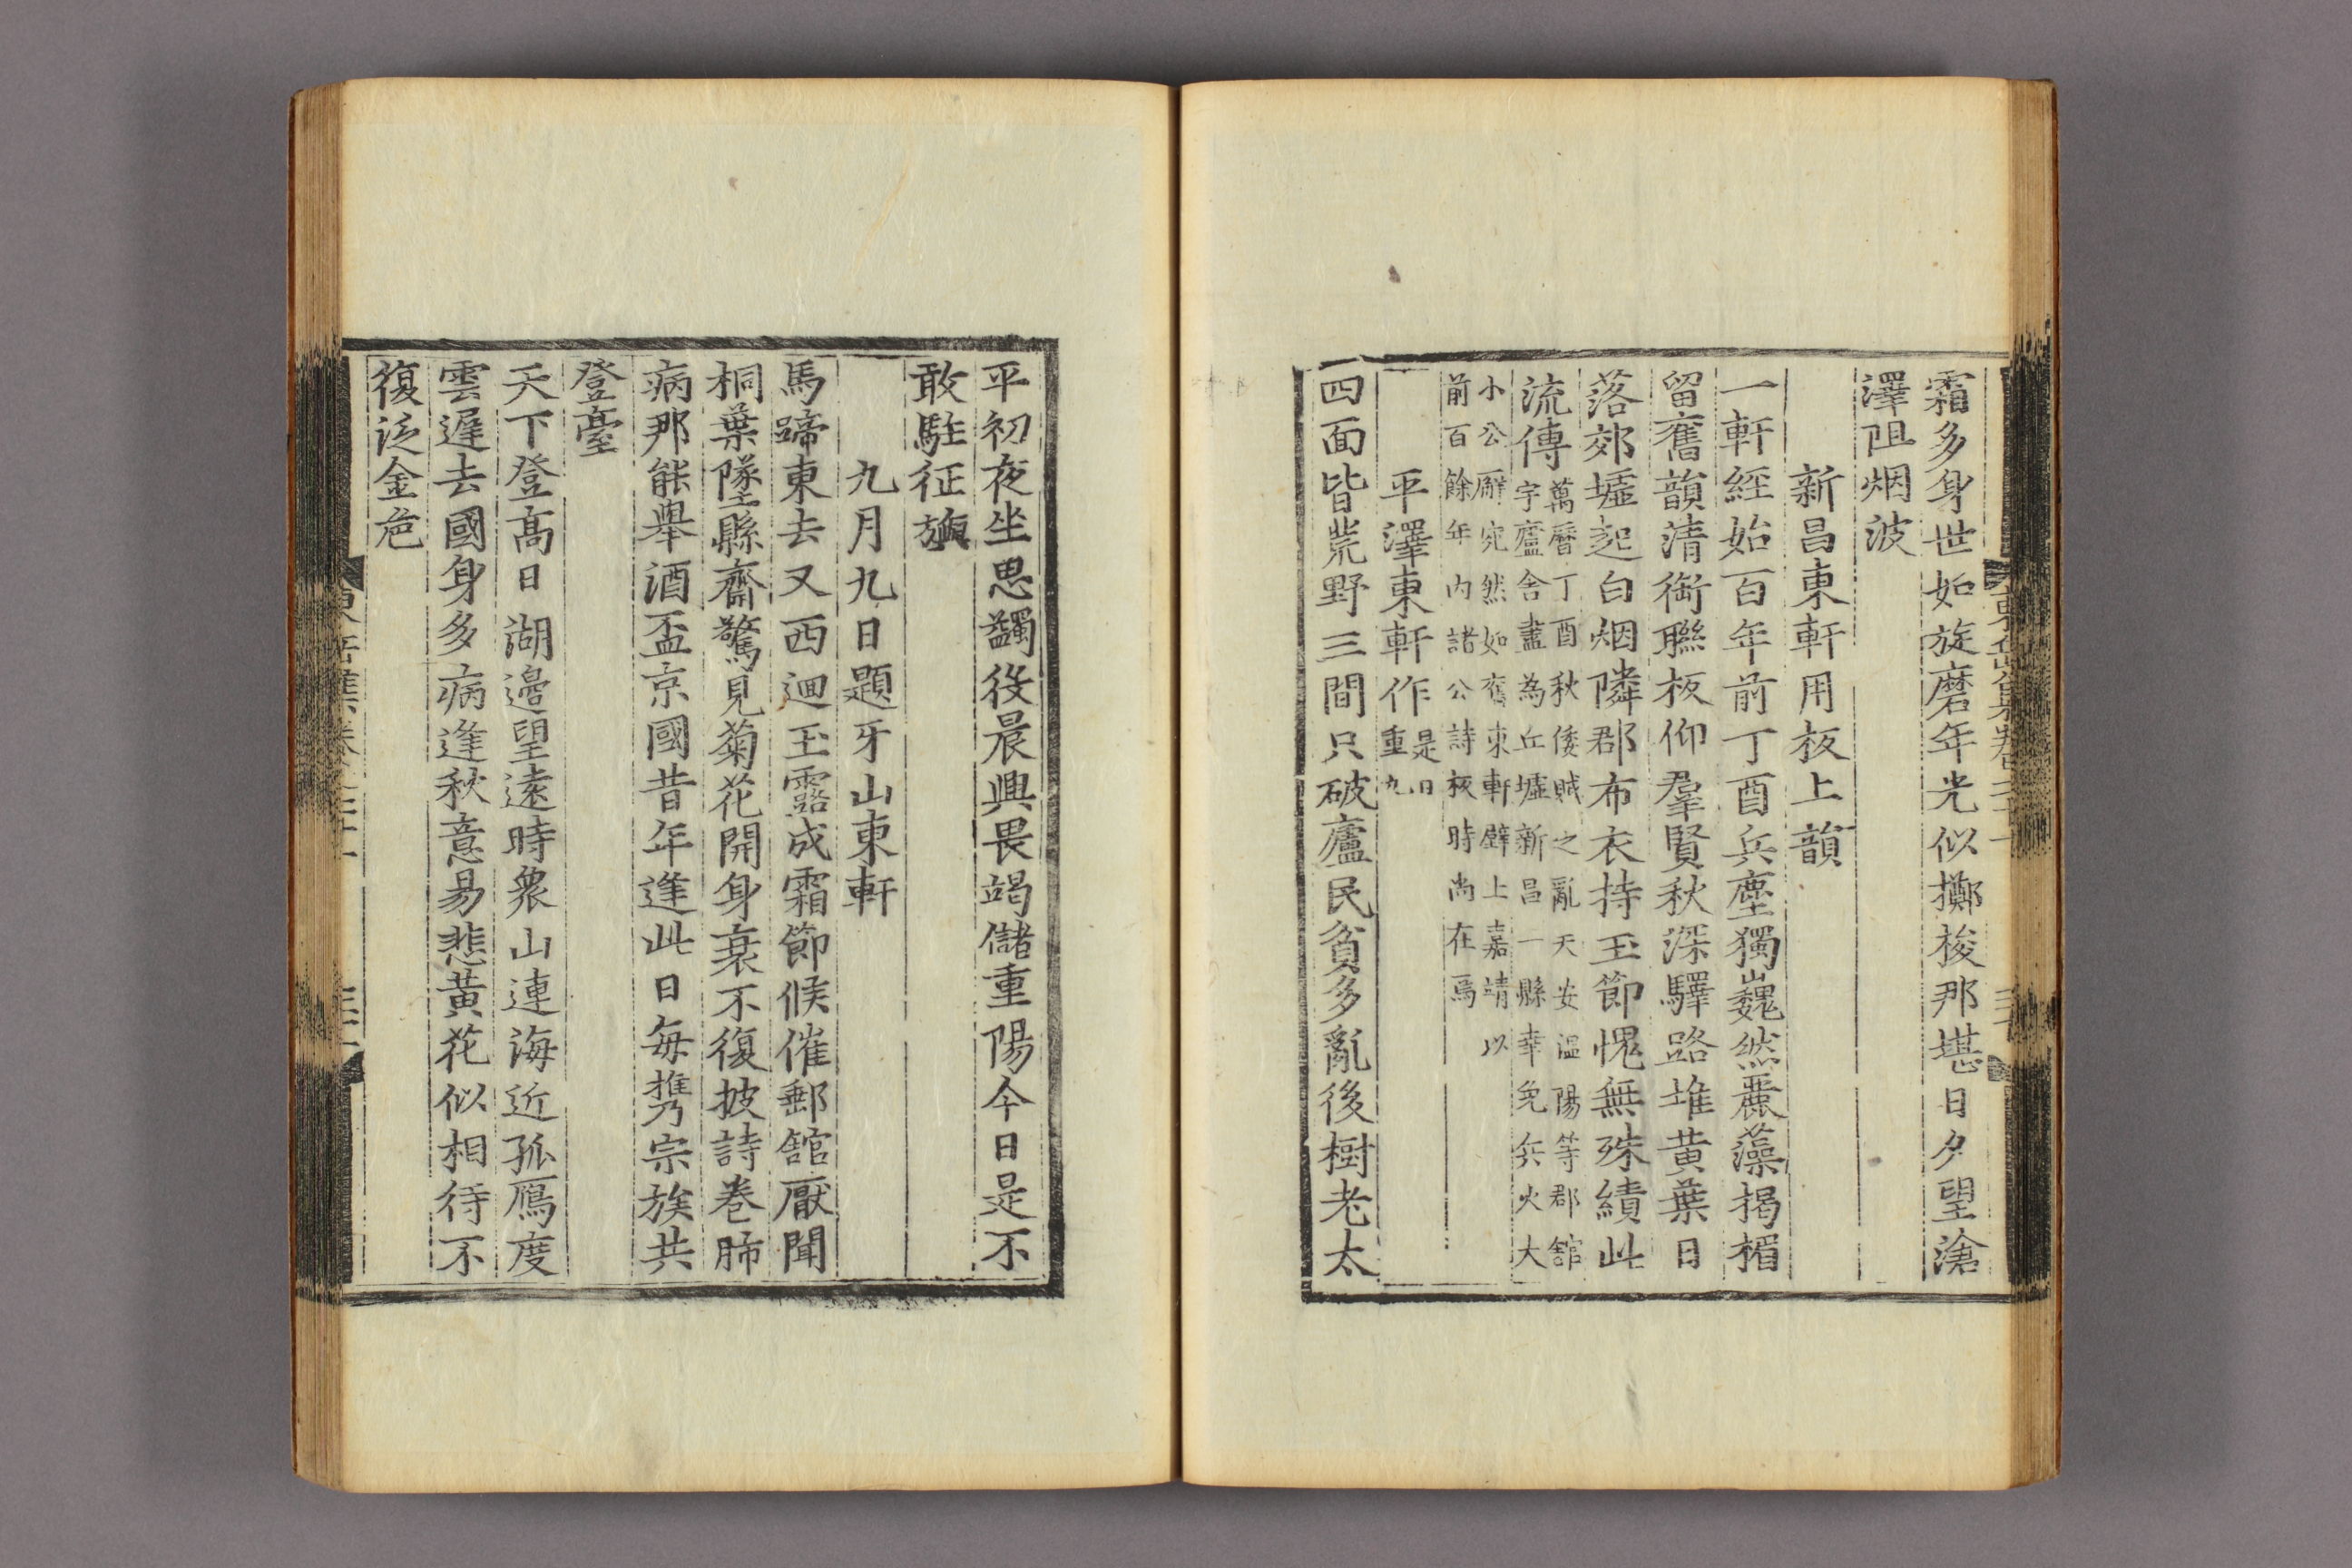 霜多身世如旋磨年光似擲梭那堪日夕望滄
澤阻烟波
新昌東軒用板上韻
一軒經始百年前丁酉兵塵獨巍然麗藻揭楣
留舊韻淸銜聯板仰羣賢秋深驛路堆黃葉日
落郊墟起白烟隣郡布衣持玉節愧無殊績此
流傳
萬曆丁酉秋倭賊之亂天安溫陽等郡舘
宇廬舍盡為丘墟新昌一縣幸免兵火大
小公廨宛然如舊東軒壁上嘉靖以
前百餘年內諸公詩板時尚在焉
平澤東軒作
是日
重九
四面皆荒野三間只破廬民貧多亂後樹老太
平初夜坐思蠲役晨興畏竭儲重陽今日是不
敢駐征旟
九月九日題牙山東軒
馬蹄東去又西迴玉露成霜節候催郵舘厭聞
桐葉墜縣齋驚見菊花開身衰不復披詩卷肺
病那能擧酒盃京國昔年逢此日每携宗族共
登臺
天下登高日湖邉望遠時衆山連海近孤鴈度
雲遲去國身多病逢秋意易悲黃花似相待不
復泛金巵